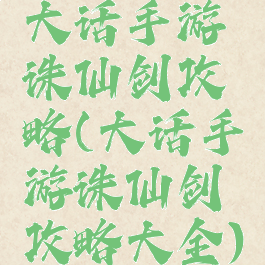 大话手游
诛仙剑攻
略(大话手
游诛仙剑
攻略大全)